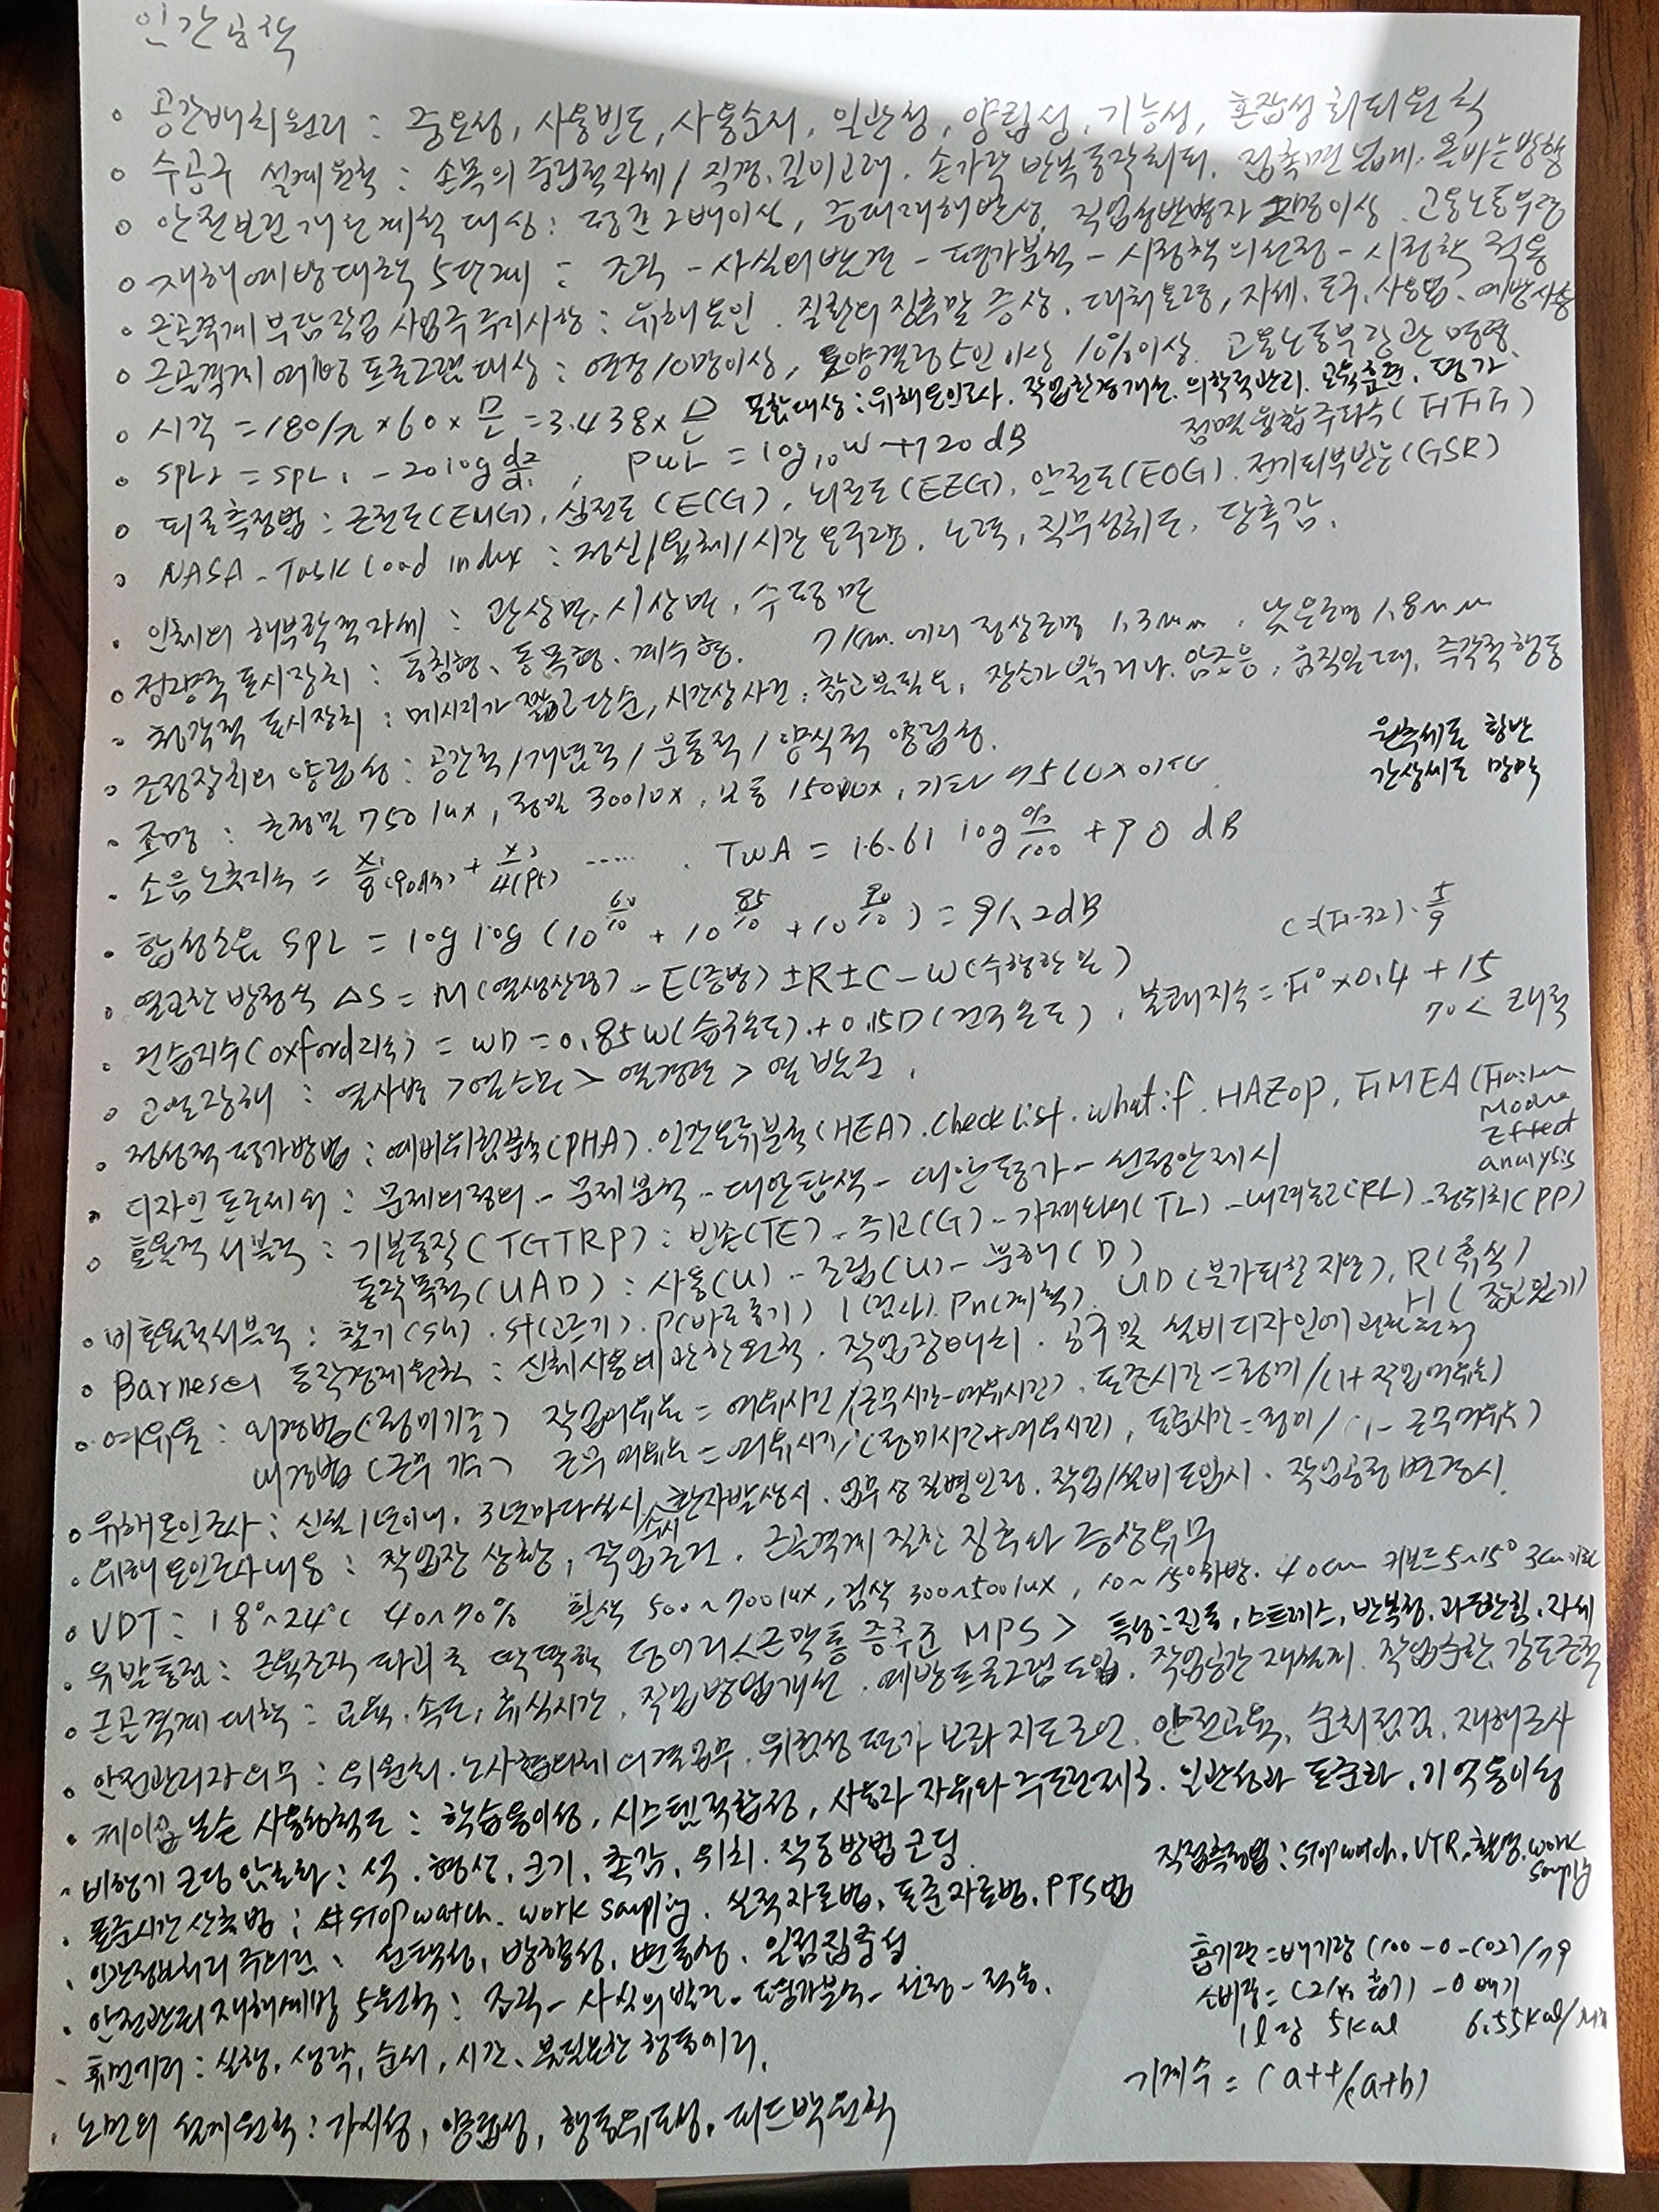 인간공학
• 공간배치원리 : 중요성, 사용빈도, 사용순서, 일관성, 양립성, 기능성, 혼잡성 회피원칙
• 수공구 설계원칙 : 손목의 중립적자세 / 직경, 길이고려, 손가락 반복동작회피, 접촉면넓게, 올바른방향
• 안전보건개선계획 대상 : 평균 2배이상, 중대재해발생, 직업성반병자 2명이상, 고용노동부령
• 재해예방대책 5단계 : 조직 - 사실의발견 - 평가분석 - 시정책의선정 - 시정책 적용
• 근골격계 부담작업 사업주 주지사항 : 유해요인, 질환의 징후말 증상, 대처요령, 자세, 도구, 사용법, 예방사항
• 근골격계 예방 프로그램 대상 : 연간 10명이상, 요양결정 5인이상 10%이상, 고용노동부장관 명령
포함대상 : 유해요인조사, 작업환경개선, 의학적관리, 교육훈련, 평가
• 시각 = 180/π × 60 × D/L = 3.438 × D/L
점멸융합주파수 (FFF)
• SPL2 = SPL1 - 20 log d2/d1, PWL = log10 W + 120 dB
• 피로측정법 : 근전도(EMG), 심전도(ECG), 뇌전도(EEG), 안전도(EOG), 전기피부반응(GSR)
• NASA-Task Load index : 정신/육체/시간 요구량, 노력, 직무성취도, 당혹감,
• 인체의 해부학적자세 : 관상면, 시상면, 수평면
• 정량적 표시장치 : 동침형, 동목형, 계수형. 71cm 에서 정상조명 1.3mm, 낮은조명 1.8mm
• 청각적 표시장치 : 메시지가 짧고 단순, 시간상사건, 참고불필요, 장소가 밝거나, 암조응, 움직일때, 즉각적 행동
• 조정장치의 양립성 : 공간적/개념적/운동적/양식적 양립성.
원추세포 황반
간상세포 망막
• 조명 : 초정밀 750 lux, 정밀 300 lux, 보통 150 lux, 기타 75 lux 이상
• 소음노출지수 = x1/8(90dB) + x2/4(95) ..... , TWA = 16.61 log %/100 + 90 dB
• 합성소음 SPL = log log (10^60/10 + 10^85/10 + 10^90/10) = 91.2dB
C=(F-32)·5/9
• 열교환 방정식 ΔS = M(열생산량) - E(증발) ± R ± C - W(수행한 일)
• 건습지수(oxford지수) = WD = 0.85W(습구온도) + 0.15D(건구온도), 불쾌지수 = F° × 0.4 + 15
70 < 쾌적
• 고열장해 : 열사병 > 열소모 > 열경련 > 열발진,
• 정성적 평가방법 : 예비위험분석(PHA), 인간오류분석(HEA), Check List, what if, HAZOP, FMEA (Failure
Mode
Effect
analysis
• 디자인 프로세서 : 문제의정의 - 문제분석 - 대안탐색 - 대안평가 - 선정안제시
• 효율적 서블릭 : 기본동작(TGTRP) : 빈손(TE) - 쥐고(G) - 가져와서(TL) - 내려놓고(RL) - 정위치(PP)
동작목적(UAD) : 사용(U) - 조립(U) - 분해(D)
• 비효율적서블릭 : 찾기(Sh), St(고르기), P(바로놓기) I(검사), Pn(계획), UD(불가피한 지연), R(휴식)
H(잡고있기)
• Barnes의 동작경제원칙 : 신체사용에 관한 원칙, 작업장배치, 공구 및 설비디자인에 관한원칙
• 여유율 : 외경법(정미기준) 작업여유율 = 여유시간/(근무시간-여유시간), 표준시간 = 정미/(1+작업여유율)
내경법(근무기준) 근무여유율 = 여유시간/(정미시간+여유시간), 표준시간 = 정미/(1-근무여유율)
• 유해요인조사 : 신설1년이내, 3년마다실시, 수시 환자발생시, 업무상질병인정, 작업/설비도입시, 작업공정변경시.
• 유해요인조사내용 : 작업장 상황, 작업조건, 근골격계 질환 징후와 증상유무
• VDT : 18°~24℃ 40~70% 흰색 500~700lux, 검색 300~500lux, 10~15°하방, 40cm 키보드 5~15° 3cm이하
• 유발통점 : 근육조직 파괴로 딱딱해 덩어리 <근막통증후군 MPS> 특성 : 진동, 스트레스, 반복성, 과도한힘, 자세
• 근골격계 대책 : 교육, 속도, 휴식시간, 작업방법개선, 예방프로그램도입, 작업공간 재설계, 작업순환, 강도근력
• 안전관리자의무 : 위원회, 노사협의체 의결업무, 위험성 평가 보좌 지도조언, 안전교육, 순회점검, 재해조사
• 제이콥 닐슨 사용성척도 : 학습용이성, 시스템적합성, 사용자 자유와 주도권제공, 일반성과 표준화, 기억용이성
• 비행기 코딩 암호화 : 색, 형상, 크기, 촉감, 위치, 작동방법코딩.
직접측정법 : stop watch, VTR, 촬영, work
sampling
• 표준시간 산출법 : stop watch, work sampling, 실적자료법, 표준자료법, PTS법
• 인간정보처리 주의력 : 선택성, 방향성, 변동성, 일점집중성
• 안전관리 재해예방 5원칙 : 조직 - 사실의 발견 - 평가분석 - 선정 - 적용.
흡기량 = 배기량 (100-O-CO2)/79
소비량 = (21% 흡기) - O 배기
1l당 5kcal 6.55kcal/min
• 휴먼에러 : 실행, 생략, 순서, 시간, 불필요한 행동에러,
기계수 = (a+t/(a+b)
• 노먼의 설계원칙 : 가시성, 양립성, 행동유도성, 피드백원칙